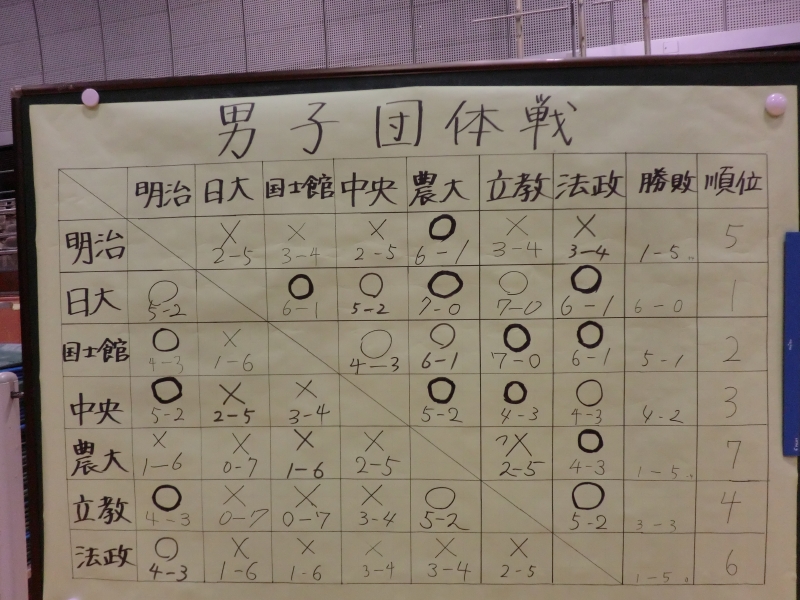 男子団体戦
明治 日大 国士館 中央 農大 立教 法政 勝敗 順位
明治 × 2-5 × 3-4 × 2-5 ○ 6-1 × 3-4 × 3-4 1-5 5
日大 ○ 5-2 ○ 6-1 ○ 5-2 ○ 7-0 ○ 7-0 ○ 6-1 6-0 1
国士館 ○ 4-3 × 1-6 ○ 4-3 ○ 6-1 ○ 7-0 ○ 6-1 5-1 2
中央 ○ 5-2 × 2-5 × 3-4 ○ 5-2 ○ 4-3 ○ 4-3 4-2 3
農大 × 1-6 × 0-7 × 1-6 × 2-5 × 2-5 ○ 4-3 1-5 7
立教 ○ 4-3 × 0-7 × 0-7 × 3-4 ○ 5-2 ○ 5-2 3-3 4
法政 ○ 4-3 × 1-6 × 1-6 × 3-4 × 3-4 × 2-5 1-5 6